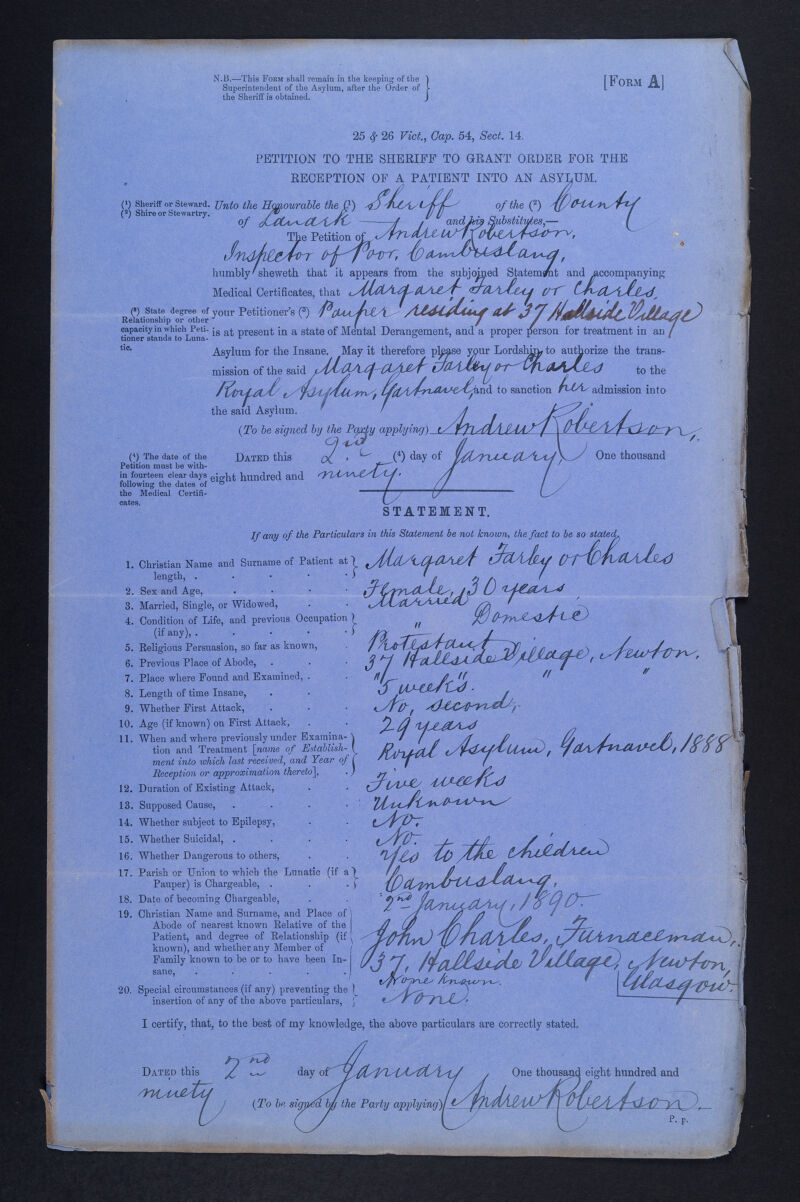 N.B.—This Form shall remain in the keeping of the
Superintendent of the Asylum, after the Order of
the Sheriff is obtained.
[Form A]
25 & 26 Vict., Cap. 54, Sect. 14.
PETITION TO THE SHERIFF TO GRANT ORDER FOR THE
RECEPTION OF A PATIENT INTO AN ASYLUM.
(1) Sheriff or Steward.
(2) Shire or Stewartry.
Unto the Honourable the (1) Sheriff of the (2) County
of Lanark and his Substitutes,—
The Petition of Andrew Robertson,
Inspector of Poor, Cambuslang,
humbly sheweth that it appears from the subjoined Statement and accompanying
Medical Certificates, that Margaret Farley or Charles,
(3) State degree of
Relationship or other
capacity in which Peti-
tioner stands to Luna-
tic.
your Petitioner's (3) Pauper residing at 37 Hallside Village
is at present in a state of Mental Derangement, and a proper person for treatment in an
Asylum for the Insane. May it therefore please your Lordship to authorize the trans-
mission of the said Margaret Farley or Charles to the
Royal Asylum, Gartnavel, and to sanction her admission into
the said Asylum.
(To be signed by the Party applying) Andrew Robertson,
(4) The date of the
Petition must be with-
in fourteen clear days
following the dates of
the Medical Certifi-
cates.
Dated this 2nd (4) day of January, One thousand
eight hundred and ninety.
STATEMENT.
If any of the Particulars in this Statement be not known, the fact to be so stated.
1. Christian Name and Surname of Patient at
length, . Margaret Farley or Charles
2. Sex and Age, Female, 30 years
3. Married, Single, or Widowed, Married
4. Condition of Life, and previous Occupation
(if any), . " Domestic
5. Religious Persuasion, so far as known, Protestant
6. Previous Place of Abode, 37 Hallside Village, Newton.
7. Place where Found and Examined, " " " "
8. Length of time Insane, 5 weeks.
9. Whether First Attack, No, second,
10. Age (if known) on First Attack, 29 years
11. When and where previously under Examina-
tion and Treatment [name of Establish-
ment into which last received, and Year of
Reception or approximation thereto], Royal Asylum, Gartnavel, 1888
12. Duration of Existing Attack, Five weeks
13. Supposed Cause, Unknown
14. Whether subject to Epilepsy, No.
15. Whether Suicidal, No.
16. Whether Dangerous to others, Yes to the children
17. Parish or Union to which the Lunatic (if a
Pauper) is Chargeable, Cambuslang.
18. Date of becoming Chargeable, 2nd January, 1890.
19. Christian Name and Surname, and Place of
Abode of nearest known Relative of the
Patient, and degree of Relationship (if
known), and whether any Member of
Family known to be or to have been In-
sane,
John Charles, Furnaceman,
37, Hallside Village, Newton,
Glasgow.
None known.
20. Special circumstances (if any) preventing the
insertion of any of the above particulars, None.
I certify, that, to the best of my knowledge, the above particulars are correctly stated.
Dated this 2nd day of January One thousand eight hundred and
ninety
(To be signed by the Party applying) Andrew Robertson.
P. p.